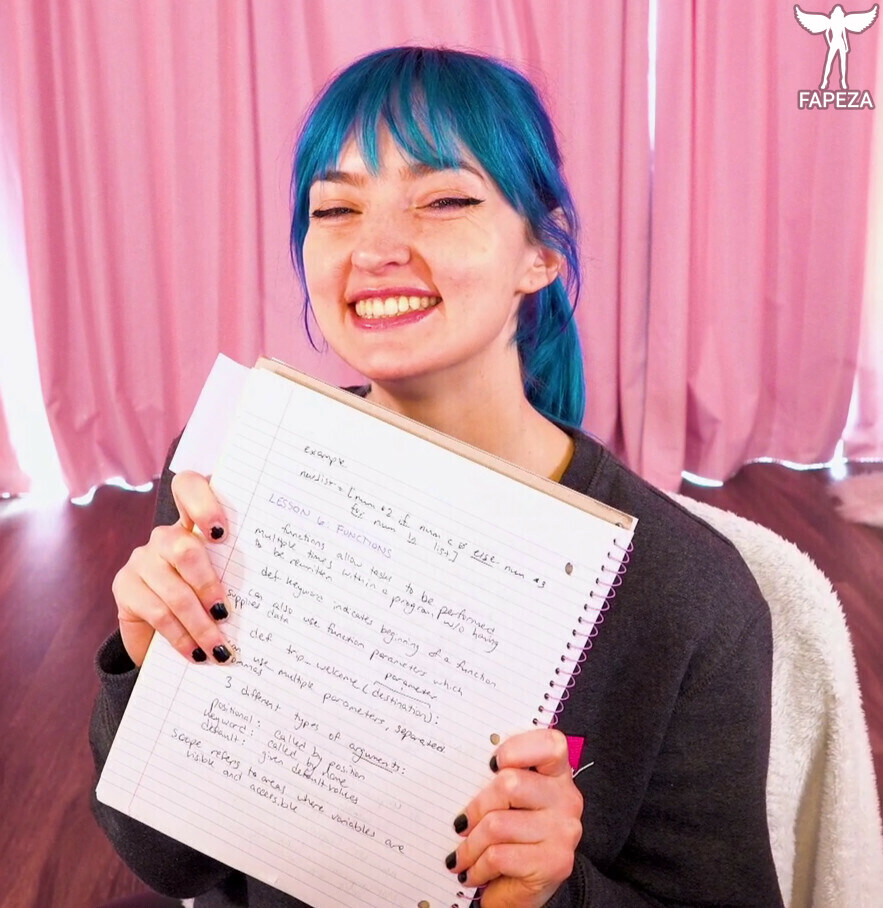 FAPEZA
example
newlist = [num *2 if num < 0 else num *3
for num in list]
LESSON 6: FUNCTIONS
functions allow task to be performed
multiple times within a program w/o having
to be rewritten
def keyword indicates beginning of a function
can also use function parameters which
supplies data
def trip_welcome(destination):
parameter
can use multiple parameters, separated
commas
3 different types of arguments:
positional: called by position
keyword: called by name
default: given default values
scope refers to areas where variables are
visible and accessible